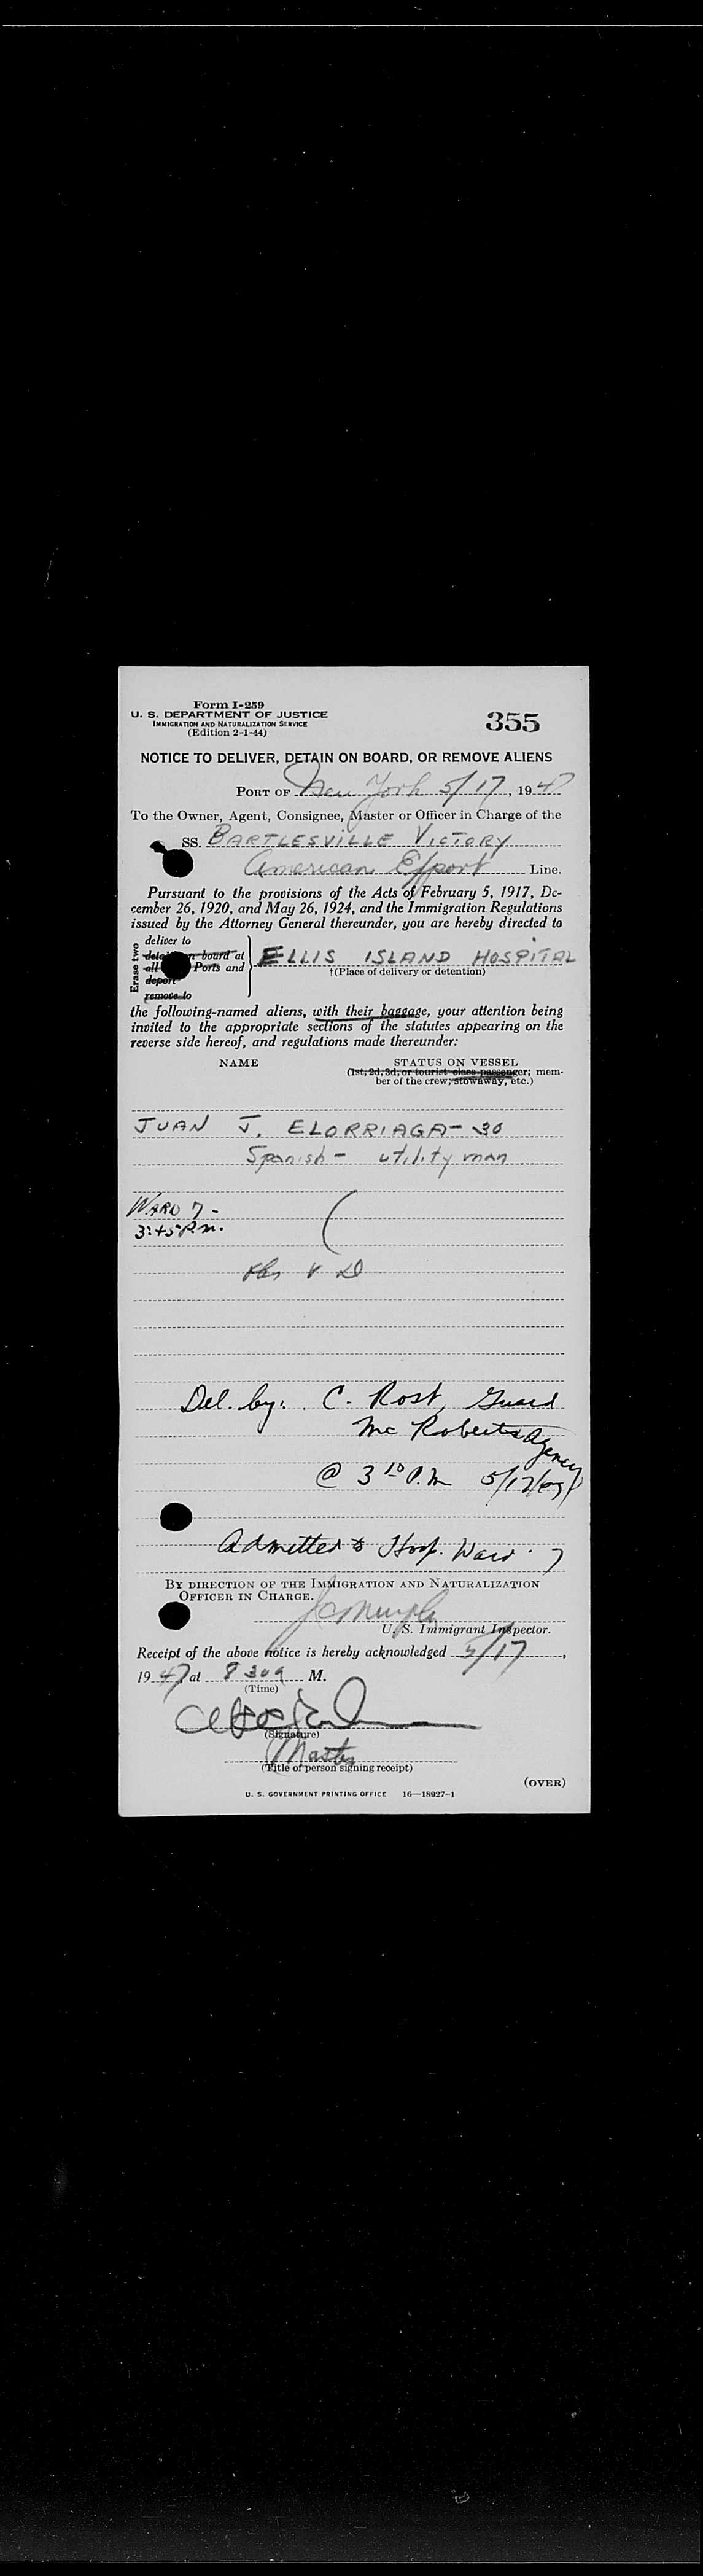 Form I-259
U. S. DEPARTMENT OF JUSTICE
IMMIGRATION AND NATURALIZATION SERVICE
(Edition 2-1-44)
355
NOTICE TO DELIVER, DETAIN ON BOARD, OR REMOVE ALIENS
PORT OF New York 5/17, 1947
To the Owner, Agent, Consignee, Master or Officer in Charge of the
SS. BARTLESVILLE VICTORY
American Export Line.
Pursuant to the provisions of the Acts of February 5, 1917, De-
cember 26, 1920, and May 26, 1924, and the Immigration Regulations
issued by the Attorney General thereunder, you are hereby directed to
Erase two
deliver to
detain on board at
all Ports and
deport
remove to
ELLIS ISLAND HOSPITAL
†(Place of delivery or detention)
the following-named aliens, with their baggage, your attention being
invited to the appropriate sections of the statutes appearing on the
reverse side hereof, and regulations made thereunder:
NAME STATUS ON VESSEL
(1st, 2d, 3d, or tourist class passenger; mem-
ber of the crew; stowaway, etc.)
JUAN J. ELORRIAGA - 30
Spanish - utility man
WARD 7 -
3:45 P.m.
V D
Del. by: C. Rost, Guard
Mc Roberts Agency
@ 3 10 P.M 5/17/47
Admitted to Hosp. Ward 7
BY DIRECTION OF THE IMMIGRATION AND NATURALIZATION
OFFICER IN CHARGE.
U. S. Immigrant Inspector.
Receipt of the above notice is hereby acknowledged 5/17,
1947 at 8 30 a M.
(Time)
(Signature)
Master
(Title of person signing receipt)
(OVER)
U. S. GOVERNMENT PRINTING OFFICE 16—18927-1